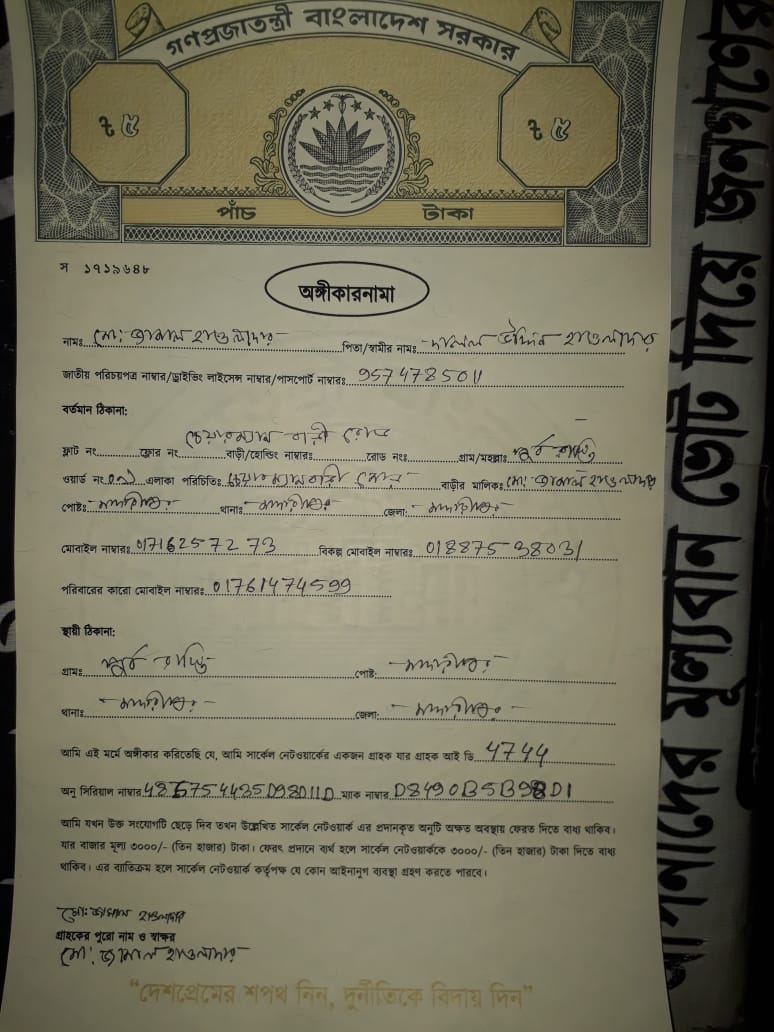 গণপ্রজাতন্ত্রী বাংলাদেশ সরকার
৳ ৫ ৳ ৫
পাঁচ টাকা
স ১৭১৯৬৪৮
অঙ্গীকারনামা
নামঃ মো: জামাল হাওলাদার পিতা/স্বামীর নামঃ উদ্দিন হাওলাদার
জাতীয় পরিচয়পত্র নাম্বার/ড্রাইভিং লাইসেন্স নাম্বার/পাসপোর্ট নাম্বারঃ 9574785011
বর্তমান ঠিকানা:
চেয়ারম্যান বাড়ী রোড
ফ্লাট নং ফ্লোর নং বাড়ী/হোল্ডিং নাম্বারঃ রোড নংঃ গ্রাম/মহল্লাঃ পূর্ব
ওয়ার্ড নং এলাকা পরিচিতিঃ চেয়ারম্যান বাড়ী রোড বাড়ীর মালিকঃ মো: জামাল হাওলাদার
পোষ্টঃ মাদারীপুর থানাঃ মাদারীপুর জেলা: মাদারীপুর
মোবাইল নাম্বারঃ 01716257273 বিকল্প মোবাইল নাম্বারঃ 01887538031
পরিবারের কারো মোবাইল নাম্বারঃ 01761474599
স্থায়ী ঠিকানা:
গ্রামঃ পূর্ব পোষ্ট: মাদারীপুর
থানাঃ মাদারীপুর জেলা: মাদারীপুর
আমি এই মর্মে অঙ্গীকার করিতেছি যে, আমি সার্কেল নেটওয়ার্কের একজন গ্রাহক যার গ্রাহক আই ডি 4744
অনু সিরিয়াল নাম্বার ম্যাক নাম্বার
আমি যখন উক্ত সংযোগটি ছেড়ে দিব তখন উল্লেখিত সার্কেল নেটওয়ার্ক এর প্রদানকৃত অনুটি অক্ষত অবস্থায় ফেরত দিতে বাধ্য থাকিব।
যার বাজার মূল্য ৩০০০/- (তিন হাজার) টাকা। ফেরৎ প্রদানে ব্যর্থ হলে সার্কেল নেটওয়ার্ককে ৩০০০/- (তিন হাজার) টাকা দিতে বাধ্য
থাকিব। এর ব্যতিক্রম হলে সার্কেল নেটওয়ার্ক কর্তৃপক্ষ যে কোন আইনানুগ ব্যবস্থা গ্রহণ করতে পারবে।
মো: জামাল হাওলাদার
গ্রাহকের পুরো নাম ও স্বাক্ষর
মো: জামাল হাওলাদার
"দেশপ্রেমের শপথ নিন, দুর্নীতিকে বিদায় দিন"
আপনাদের মূল্যবান ভোট দিয়ে জনগণের